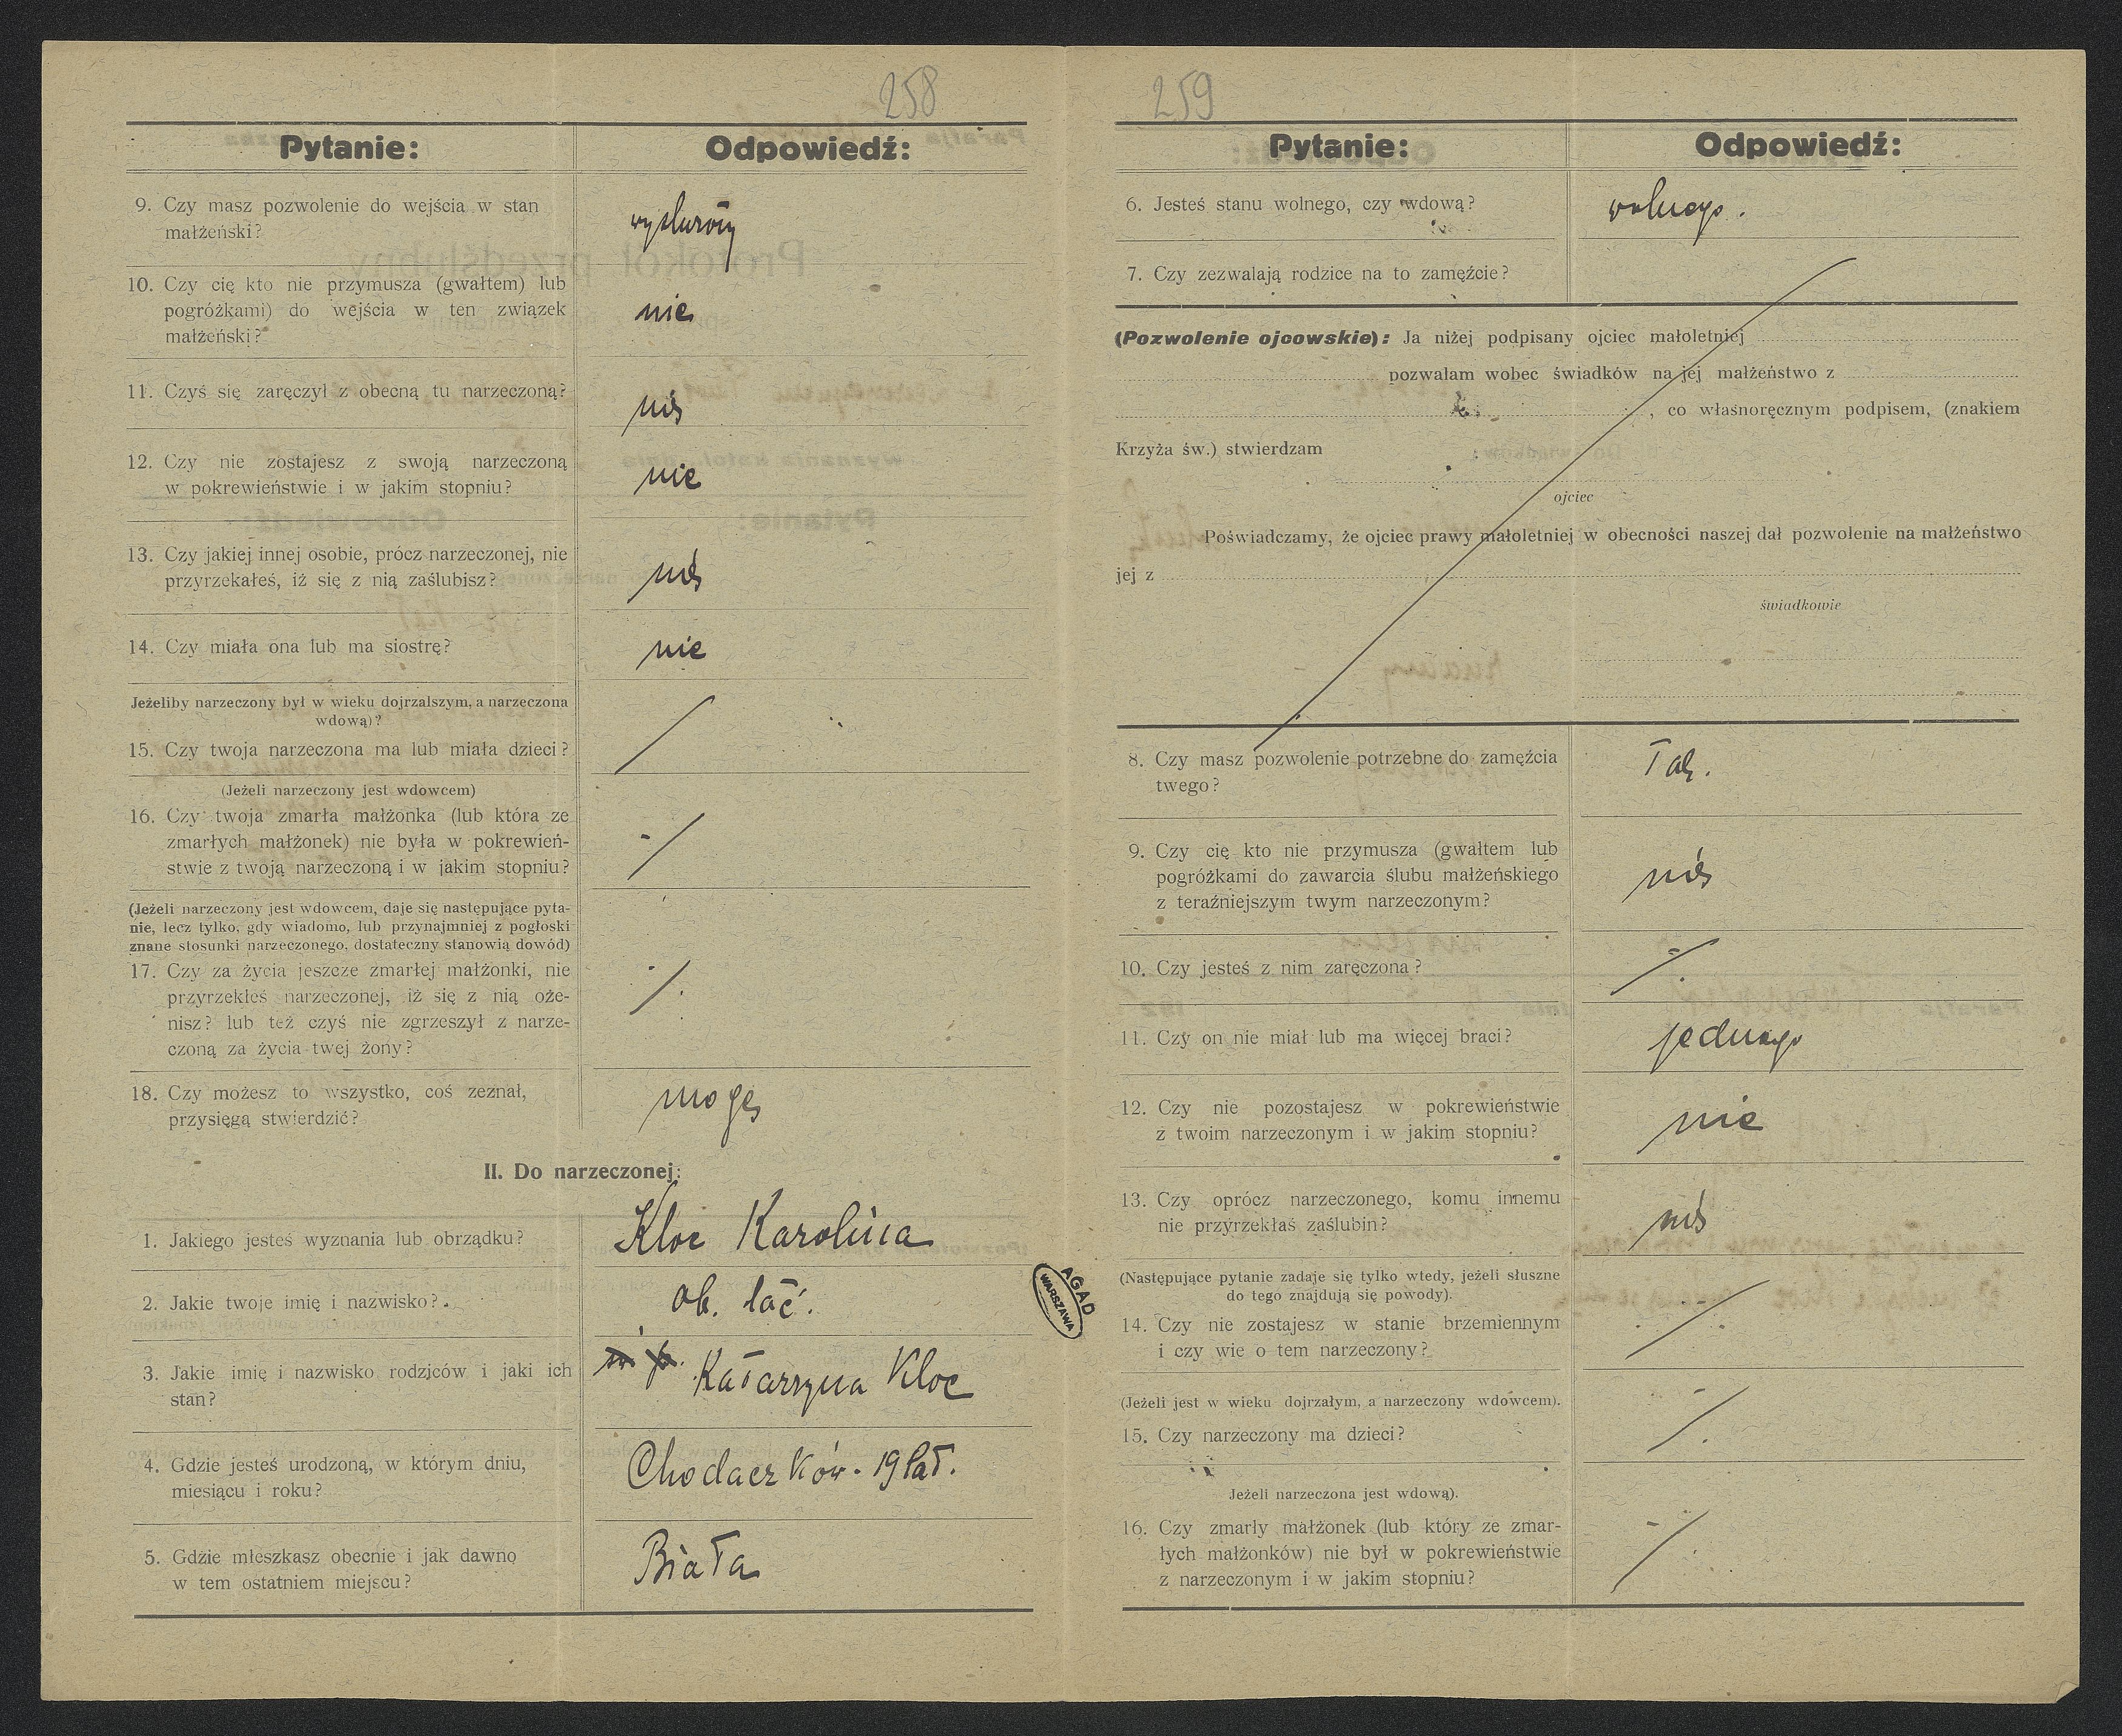 258
Pytanie: Odpowiedź:
9. Czy masz pozwolenie do wejścia w stan
małżeński?
wysłużony
10. Czy cię kto nie przymusza (gwałtem) lub
pogróżkami) do wejścia w ten związek
małżeński?
nie
11. Czyś się zaręczył z obecną tu narzeczoną?
nie
12. Czy nie zostajesz z swoją narzeczoną
w pokrewieństwie i w jakim stopniu?
nie
13. Czy jakiej innej osobie, prócz narzeczonej, nie
przyrzekałeś, iż się z nią zaślubisz?
nie
14. Czy miała ona lub ma siostrę?
nie
Jeżeliby narzeczony był w wieku dojrzalszym, a narzeczona
wdową)?
15. Czy twoja narzeczona ma lub miała dzieci?
(Jeżeli narzeczony jest wdowcem)
16. Czy twoja zmarła małżonka (lub która ze
zmarłych małżonek) nie była w pokrewień-
stwie z twoją narzeczoną i w jakim stopniu?
(Jeżeli narzeczony jest wdowcem, daje się następujące pyta-
nie, lecz tylko, gdy wiadomo, lub przynajmniej z pogłoski
znane stosunki narzeczonego, dostateczny stanowią dowód)
17. Czy za życia jeszcze zmarłej małżonki, nie
przyrzekłeś narzeczonej, iż się z nią oże-
nisz? lub też czyś nie zgrzeszył z narze-
czoną za życia twej żony?
18. Czy możesz to wszystko, coś zeznał,
przysięgą stwierdzić?
mogę
II. Do narzeczonej:
1. Jakiego jesteś wyznania lub obrządku?
Kloc Karolina
2. Jakie twoje imię i nazwisko?
ob. łać.
3. Jakie imię i nazwisko rodziców i jaki ich
stan?
Katarzyna Kloc
4. Gdzie jesteś urodzoną, w którym dniu,
miesiącu i roku?
Chodaczków. 19 lat.
5. Gdzie mieszkasz obecnie i jak dawno
w tem ostatniem miejscu?
Biała
AGAD
WARSZAWA
259
Pytanie: Odpowiedź:
6. Jesteś stanu wolnego, czy wdową?
wolnego.
7. Czy zezwalają rodzice na to zamęźcie?
(Pozwolenie ojcowskie): Ja niżej podpisany ojciec małoletniej
pozwalam wobec świadków na jej małżeństwo z
, co własnoręcznym podpisem, (znakiem
Krzyża św.) stwierdzam
ojciec
Poświadczamy, że ojciec prawy małoletniej w obecności naszej dał pozwolenie na małżeństwo
jej z
świadkowie
8. Czy masz pozwolenie potrzebne do zamęźcia
twego?
Tak.
9. Czy cię kto nie przymusza (gwałtem lub
pogróżkami do zawarcia ślubu małżeńskiego
z teraźniejszym twym narzeczonym?
nie
10. Czy jesteś z nim zaręczona?
11. Czy on nie miał lub ma więcej braci?
jednego
12. Czy nie pozostajesz w pokrewieństwie
z twoim narzeczonym i w jakim stopniu?
nie
13. Czy oprócz narzeczonego, komu innemu
nie przyrzekłaś zaślubin?
nie
(Następujące pytanie zadaje się tylko wtedy, jeżeli słuszne
do tego znajdują się powody).
14. Czy nie zostajesz w stanie brzemiennym
i czy wie o tem narzeczony?
(Jeżeli jest w wieku dojrzałym, a narzeczony wdowcem).
15. Czy narzeczony ma dzieci?
Jeżeli narzeczona jest wdową).
16. Czy zmarły małżonek (lub który ze zmar-
łych małżonków) nie był w pokrewieństwie
z narzeczonym i w jakim stopniu?